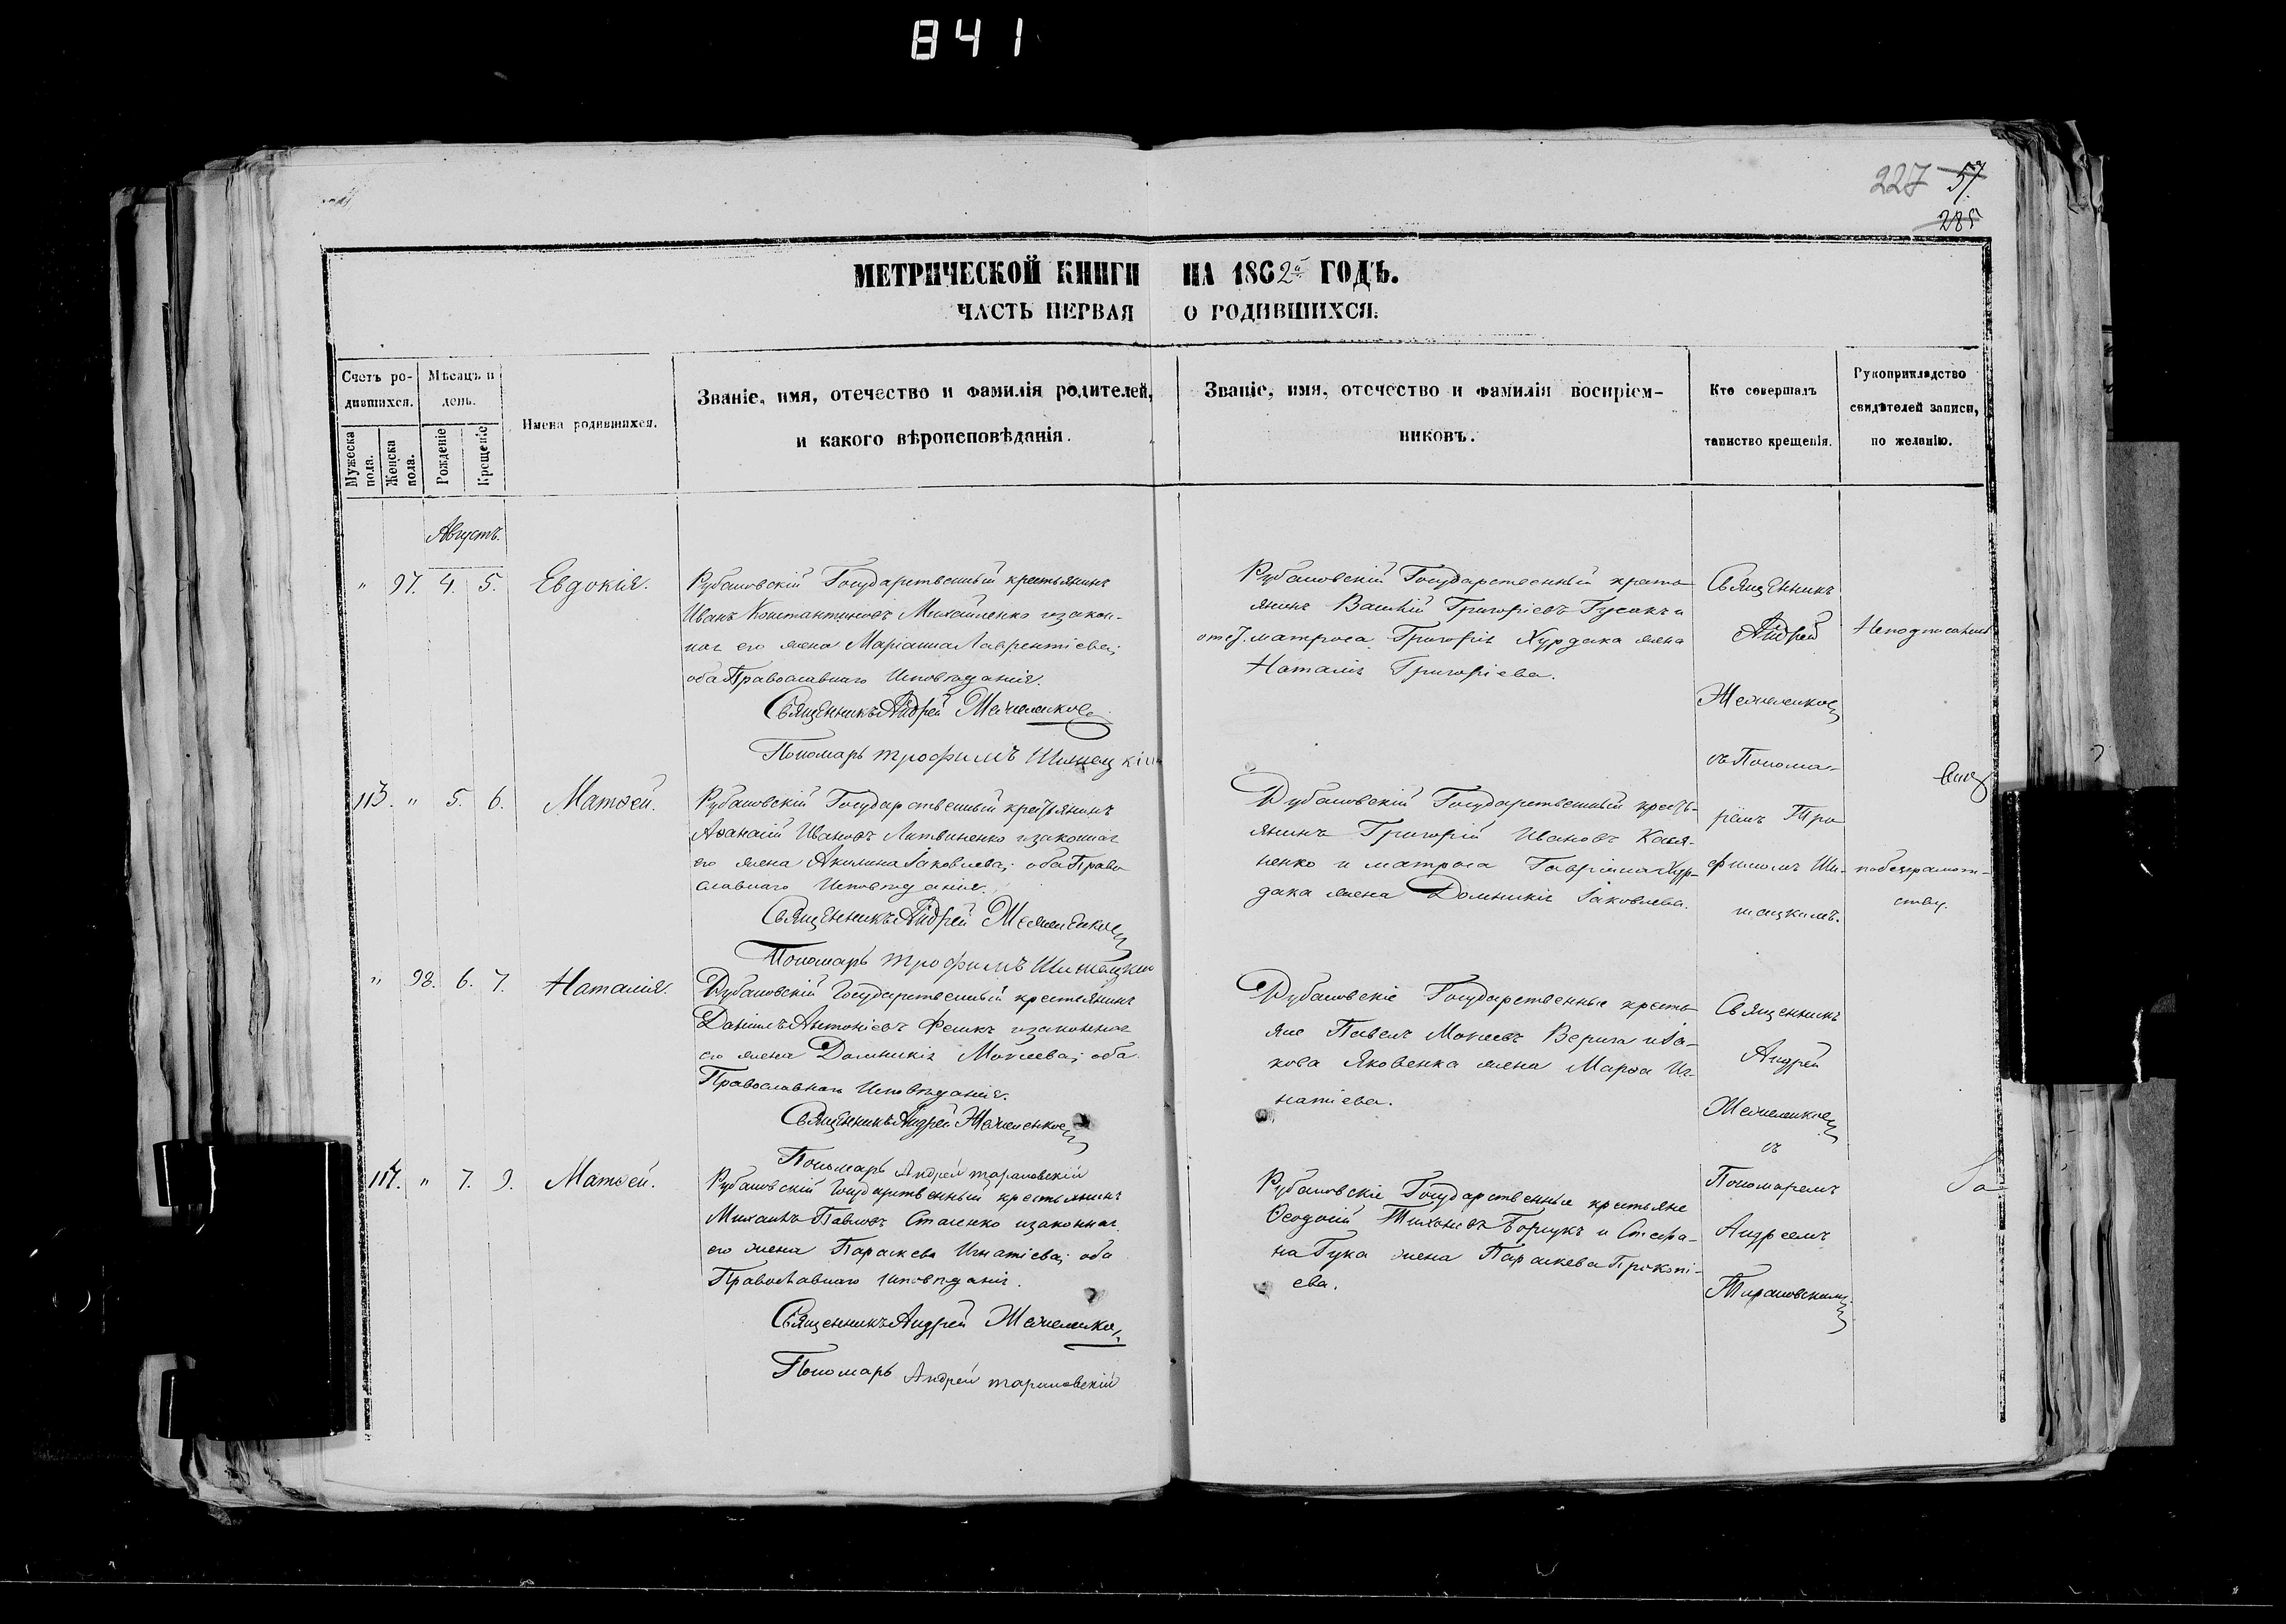 841
227 57.
285
МЕТРИЧЕСКОЙ КНИГИ НА 1862й ГОДЪ.
ЧАСТЬ ПЕРВАЯ О РОДИВШИХСЯ.
Счетъ ро-
дившихся.
Мужеска пола.
Женска пола.
Мѣсяцъ и
день.
Рожденіе
Крещеніе
Имена родившихся.
Званіе, имя, отечество и фамилія родителей,
и какого вѣроисповѣданія.
Званіе, имя, отечество и фамилія воспріем-
никовъ.
Кто совершалъ
таинство крещенія.
Рукоприкладство
свидѣтелей записи,
по желанію.
Августъ.
" 97. 4. 5. Евдокія.
Рубановскій Государственный крестьянинъ
Иванъ Константиновъ Михайленко изакон-
ная его жена Маріанна Лаврентіева;
оба Православнаго Исповѣданія.
Священникъ Андрей
Пономарь Трофимъ
Рубановскій Государственный кресть
янинъ Василій Григоріевъ Гусакъ и
матроса Григорія Хурдака жена
Наталія Григоріева.
Священникъ
Андрей
съ Понома-
ремъ Тро
фимомъ Ши-
113. " 5. 6. Матѳей.
Рубановскій Государственный крестьянинъ
Аѳанасій Ивановъ Литвиненко изаконная
его жена Акилина Іаковлева; оба Право
славнаго Исповѣданія.
Священникъ Андрей
Пономарь Трофимъ
Рубановскій Государственный кресть-
янинъ Григорій Ивановъ
ненко и матроса Гавріила Хур-
дака жена Домникія Іаковлева.
побезграмот-
ству.
" 98. 6. 7. Наталія.
Рубановскій Государственный крестьянинъ
Даніилъ Антоніевъ изаконная
его жена Домникія Моисеева; оба
Православнаго Исповѣданія.
Священникъ Андрей
Пономарь Андрей Тарановскій
Рубановскіе Государственные кресть
яне Павелъ Моисеевъ Верига и Іа-
кова Яковенка жена Марѳа Иг-
натіева.
Священникъ
Андрей
съ
Пономаремъ
Андреемъ
Тарановскимъ
114. " 7. 9. Матѳей.
Рубановскій Государственный крестьянинъ
Михаилъ Павловъ изаконная
его жена Параскева Игнатіева; оба
Православнаго Исповѣданія.
Священникъ Андрей
Пономарь Андрей Тарановскій
Рубановскіе Государственные крестьяне
Ѳеодосій Тихоніевъ Борщукъ и Стефа-
на Гука жена Параскева Прокопі-
ева.